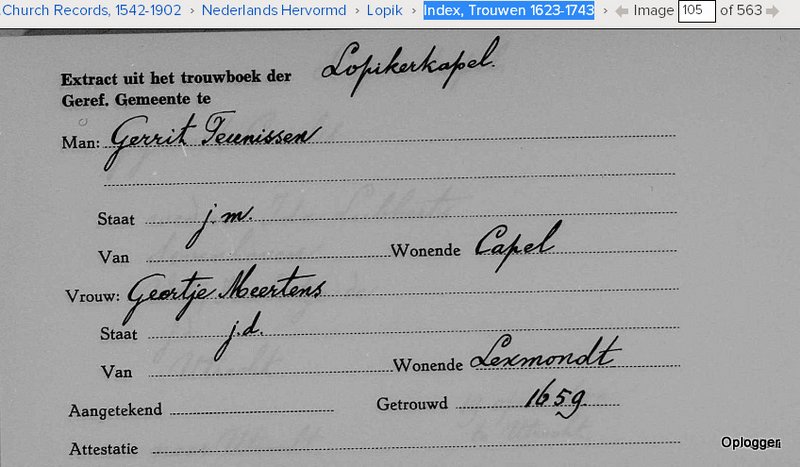 Church Records, 1542-1902 › Nederlands Hervormd › Lopik › Index, Trouwen 1623-1743 › Image 105 of 563
Extract uit het trouwboek der Lopikerkapel.
Geref. Gemeente te
Man: Gerrit Teunissen
Staat j.m.
Van Wonende Capel
Vrouw: Geertje Meertens
Staat j.d.
Van Wonende Lexmondt
Aangetekend Getrouwd 1659
Attestatie
Oplogger